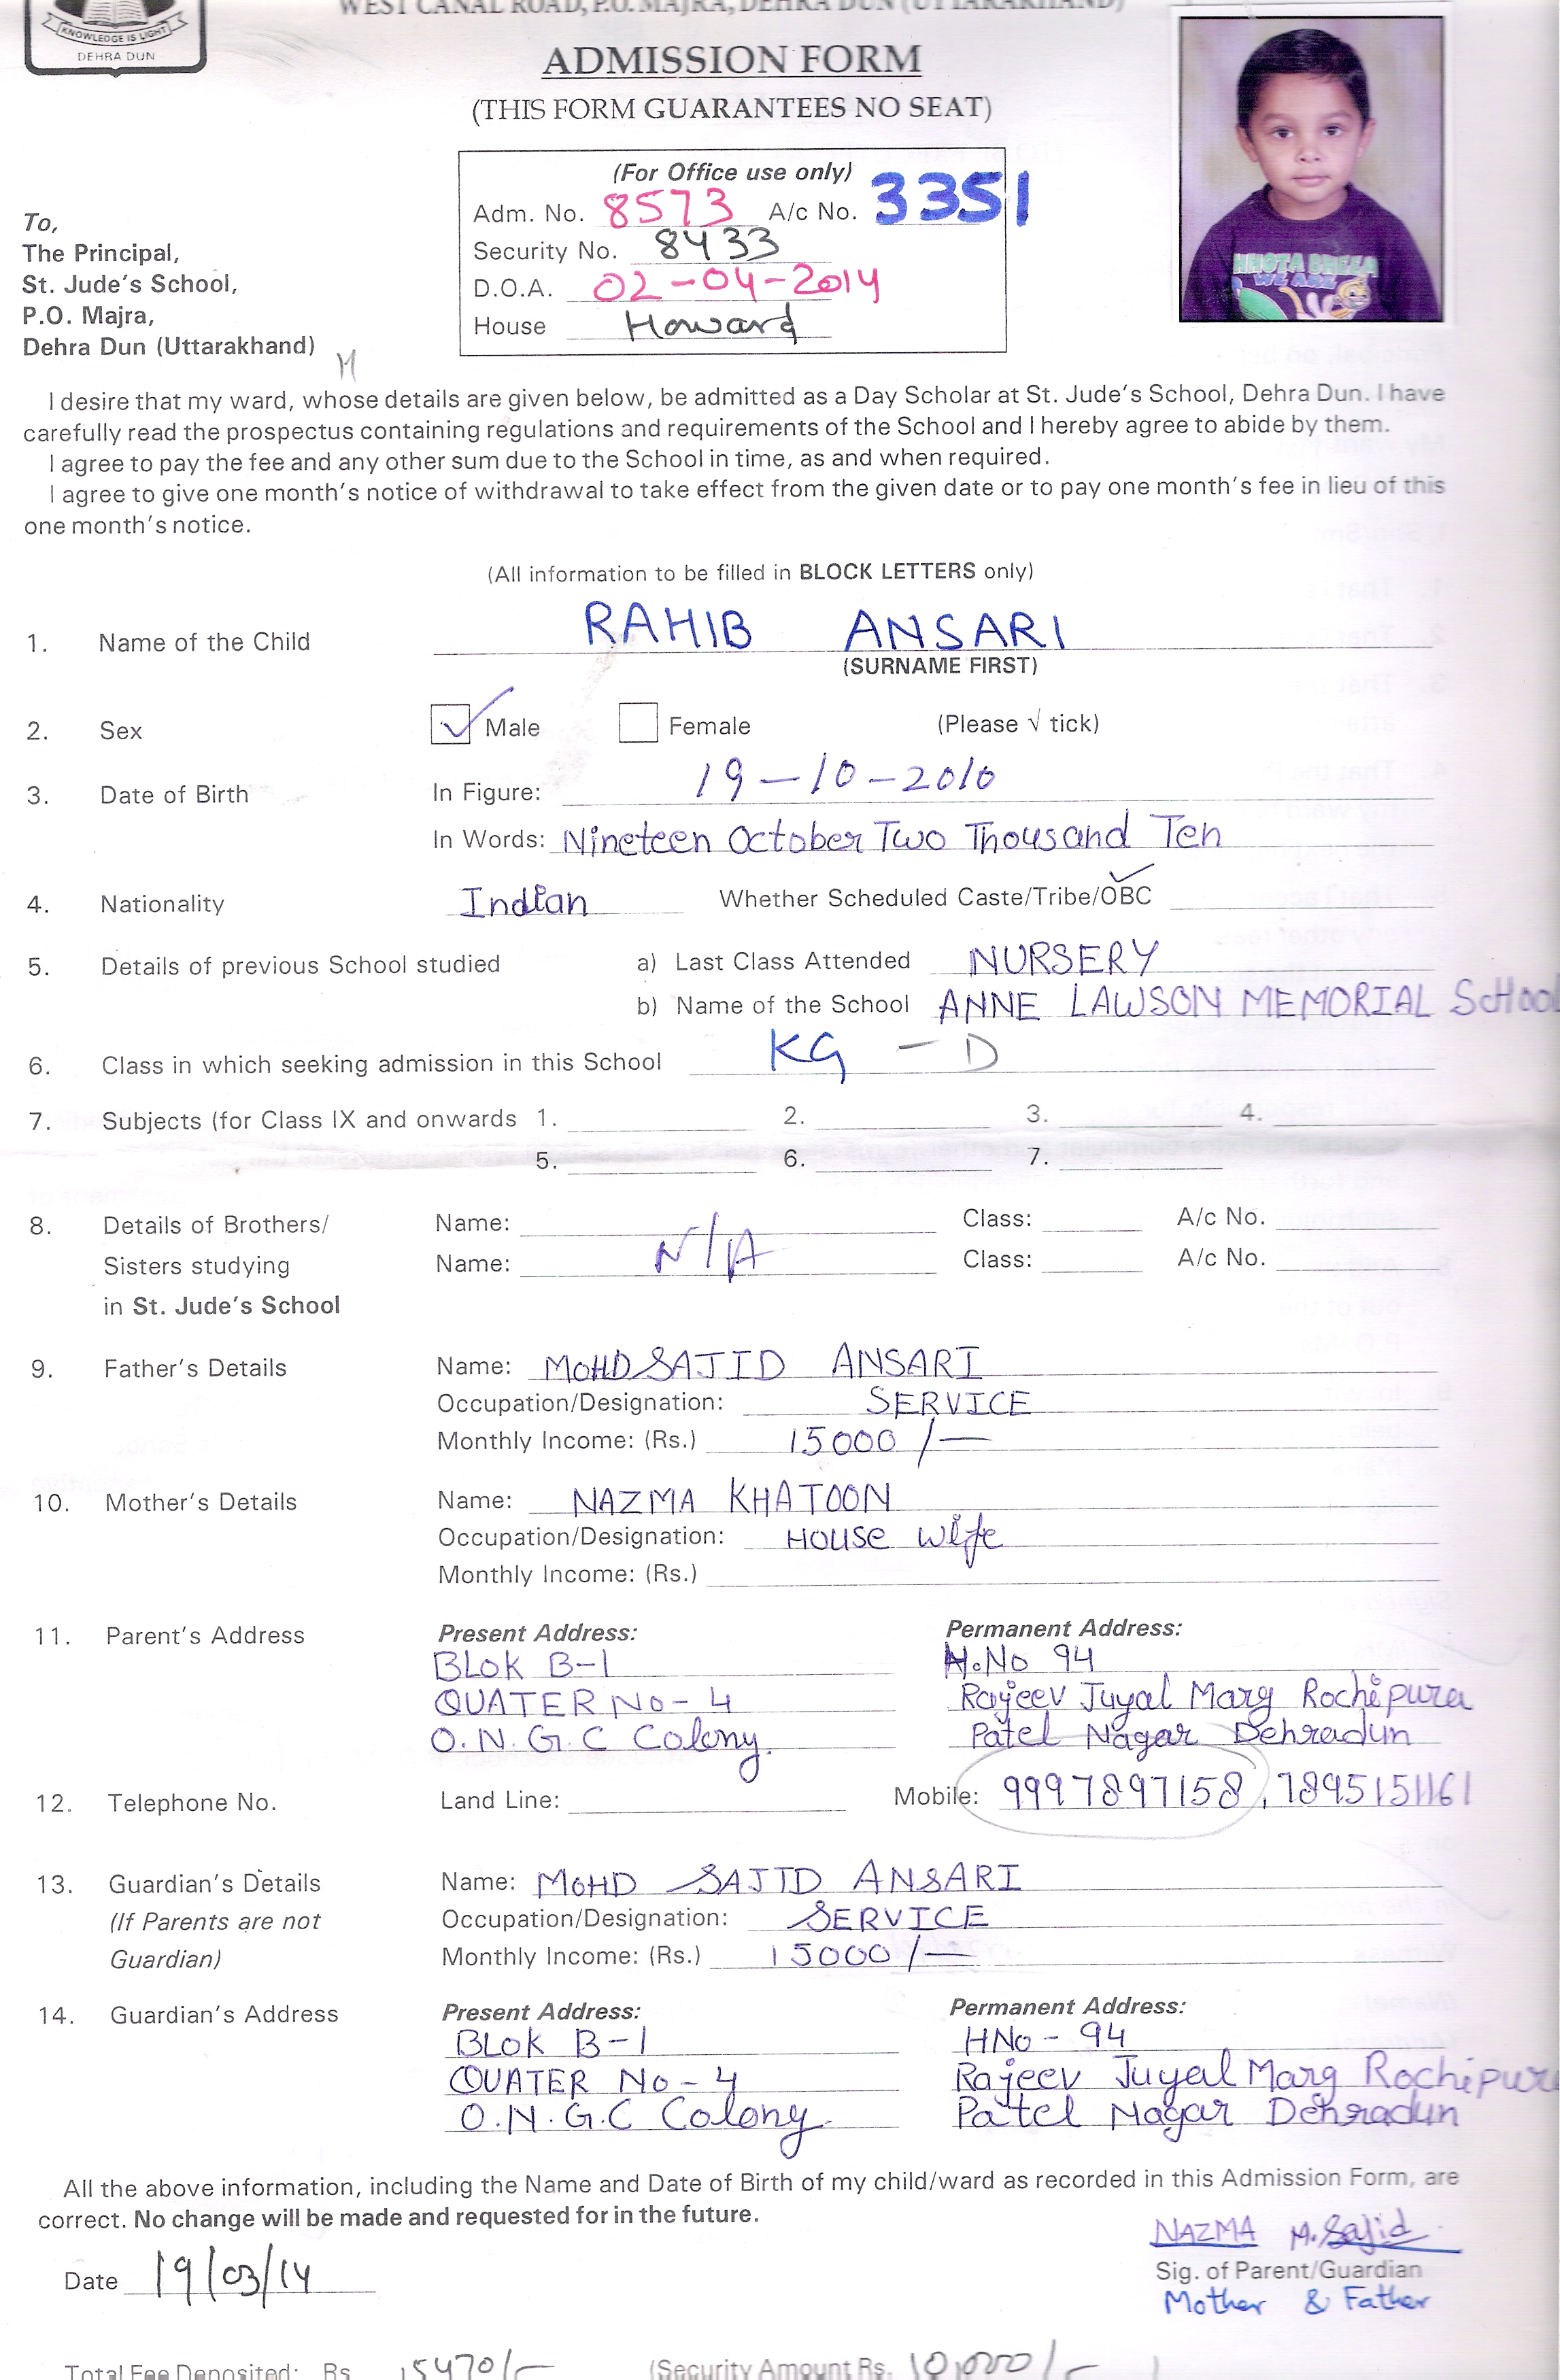 WEST CANAL ROAD, P.O. MAJRA, DEHRA DUN (UTTARAKHAND)
KNOWLEDGE IS LIGHT
DEHRA DUN
ADMISSION FORM
(THIS FORM GUARANTEES NO SEAT)
(For Office use only)
Adm. No. 8573 A/c No. 3351
Security No. 8433
D.O.A. 02-04-2014
House Howard
To,
The Principal,
St. Jude's School,
P.O. Majra,
Dehra Dun (Uttarakhand)
I desire that my ward, whose details are given below, be admitted as a Day Scholar at St. Jude's School, Dehra Dun. I have
carefully read the prospectus containing regulations and requirements of the School and I hereby agree to abide by them.
I agree to pay the fee and any other sum due to the School in time, as and when required.
I agree to give one month's notice of withdrawal to take effect from the given date or to pay one month's fee in lieu of this
one month's notice.
(All information to be filled in BLOCK LETTERS only)
1. Name of the Child RAHIB ANSARI
(SURNAME FIRST)
2. Sex ✓ Male Female (Please √ tick)
3. Date of Birth In Figure: 19-10-2010
In Words: Nineteen October Two Thousand Ten
4. Nationality Indian Whether Scheduled Caste/Tribe/OBC ✓
5. Details of previous School studied a) Last Class Attended NURSERY
b) Name of the School ANNE LAWSON MEMORIAL SCHOOL
6. Class in which seeking admission in this School KG - D
7. Subjects (for Class IX and onwards 1. 2. 3. 4.
5. 6. 7.
8. Details of Brothers/ Name: Class: A/c No.
Sisters studying Name: N/A Class: A/c No.
in St. Jude's School
9. Father's Details Name: MOHD SAJID ANSARI
Occupation/Designation: SERVICE
Monthly Income: (Rs.) 15000/-
10. Mother's Details Name: NAZMA KHATOON
Occupation/Designation: HOUSE Wife
Monthly Income: (Rs.)
11. Parent's Address Present Address: Permanent Address:
BLOK B-1 H.No 94
QUATER No-4 Rajeev Juyal Marg Rochipura
O.N.G.C Colony. Patel Nagar Dehradun
12. Telephone No. Land Line: Mobile: 9997897158, 7895151161
13. Guardian's Details Name: MOHD SAJID ANSARI
(If Parents are not Occupation/Designation: SERVICE
Guardian) Monthly Income: (Rs.) 15000/-
14. Guardian's Address Present Address: Permanent Address:
BLOK B-1 HNo-94
QUATER No-4 Rajeev Juyal Marg Rochipura
O.N.G.C Colony. Patel Nagar Dehradun
All the above information, including the Name and Date of Birth of my child/ward as recorded in this Admission Form, are
correct. No change will be made and requested for in the future.
NAZMA M.Sajid
Date 19/03/14 Sig. of Parent/Guardian
Mother & Father
Total Fee Deposited: Rs 15470/- (Security Amount Rs. 10,000/-